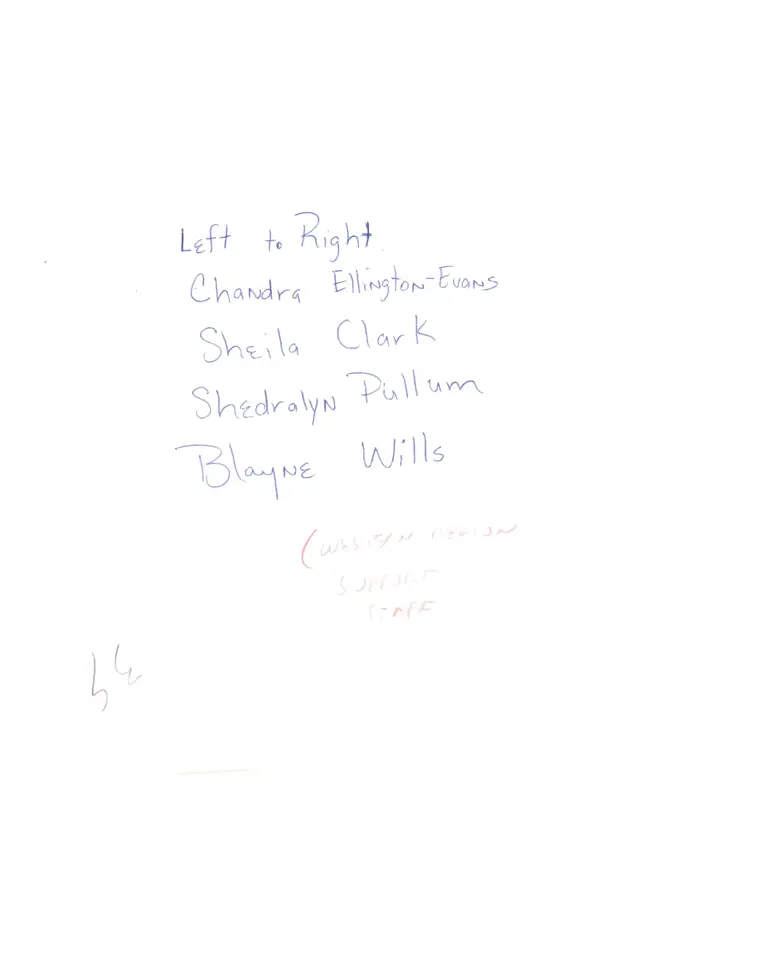 Left to Right
Chandra Ellington-Evans
Sheila Clark
Shedralyn Pullum
Blayne Wills
(WESTERN REGION
SUPPORT
STAFF